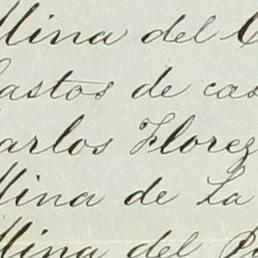 Mina del C
Gastos de cas
Carlos Florez
Mina de La
Mina del P